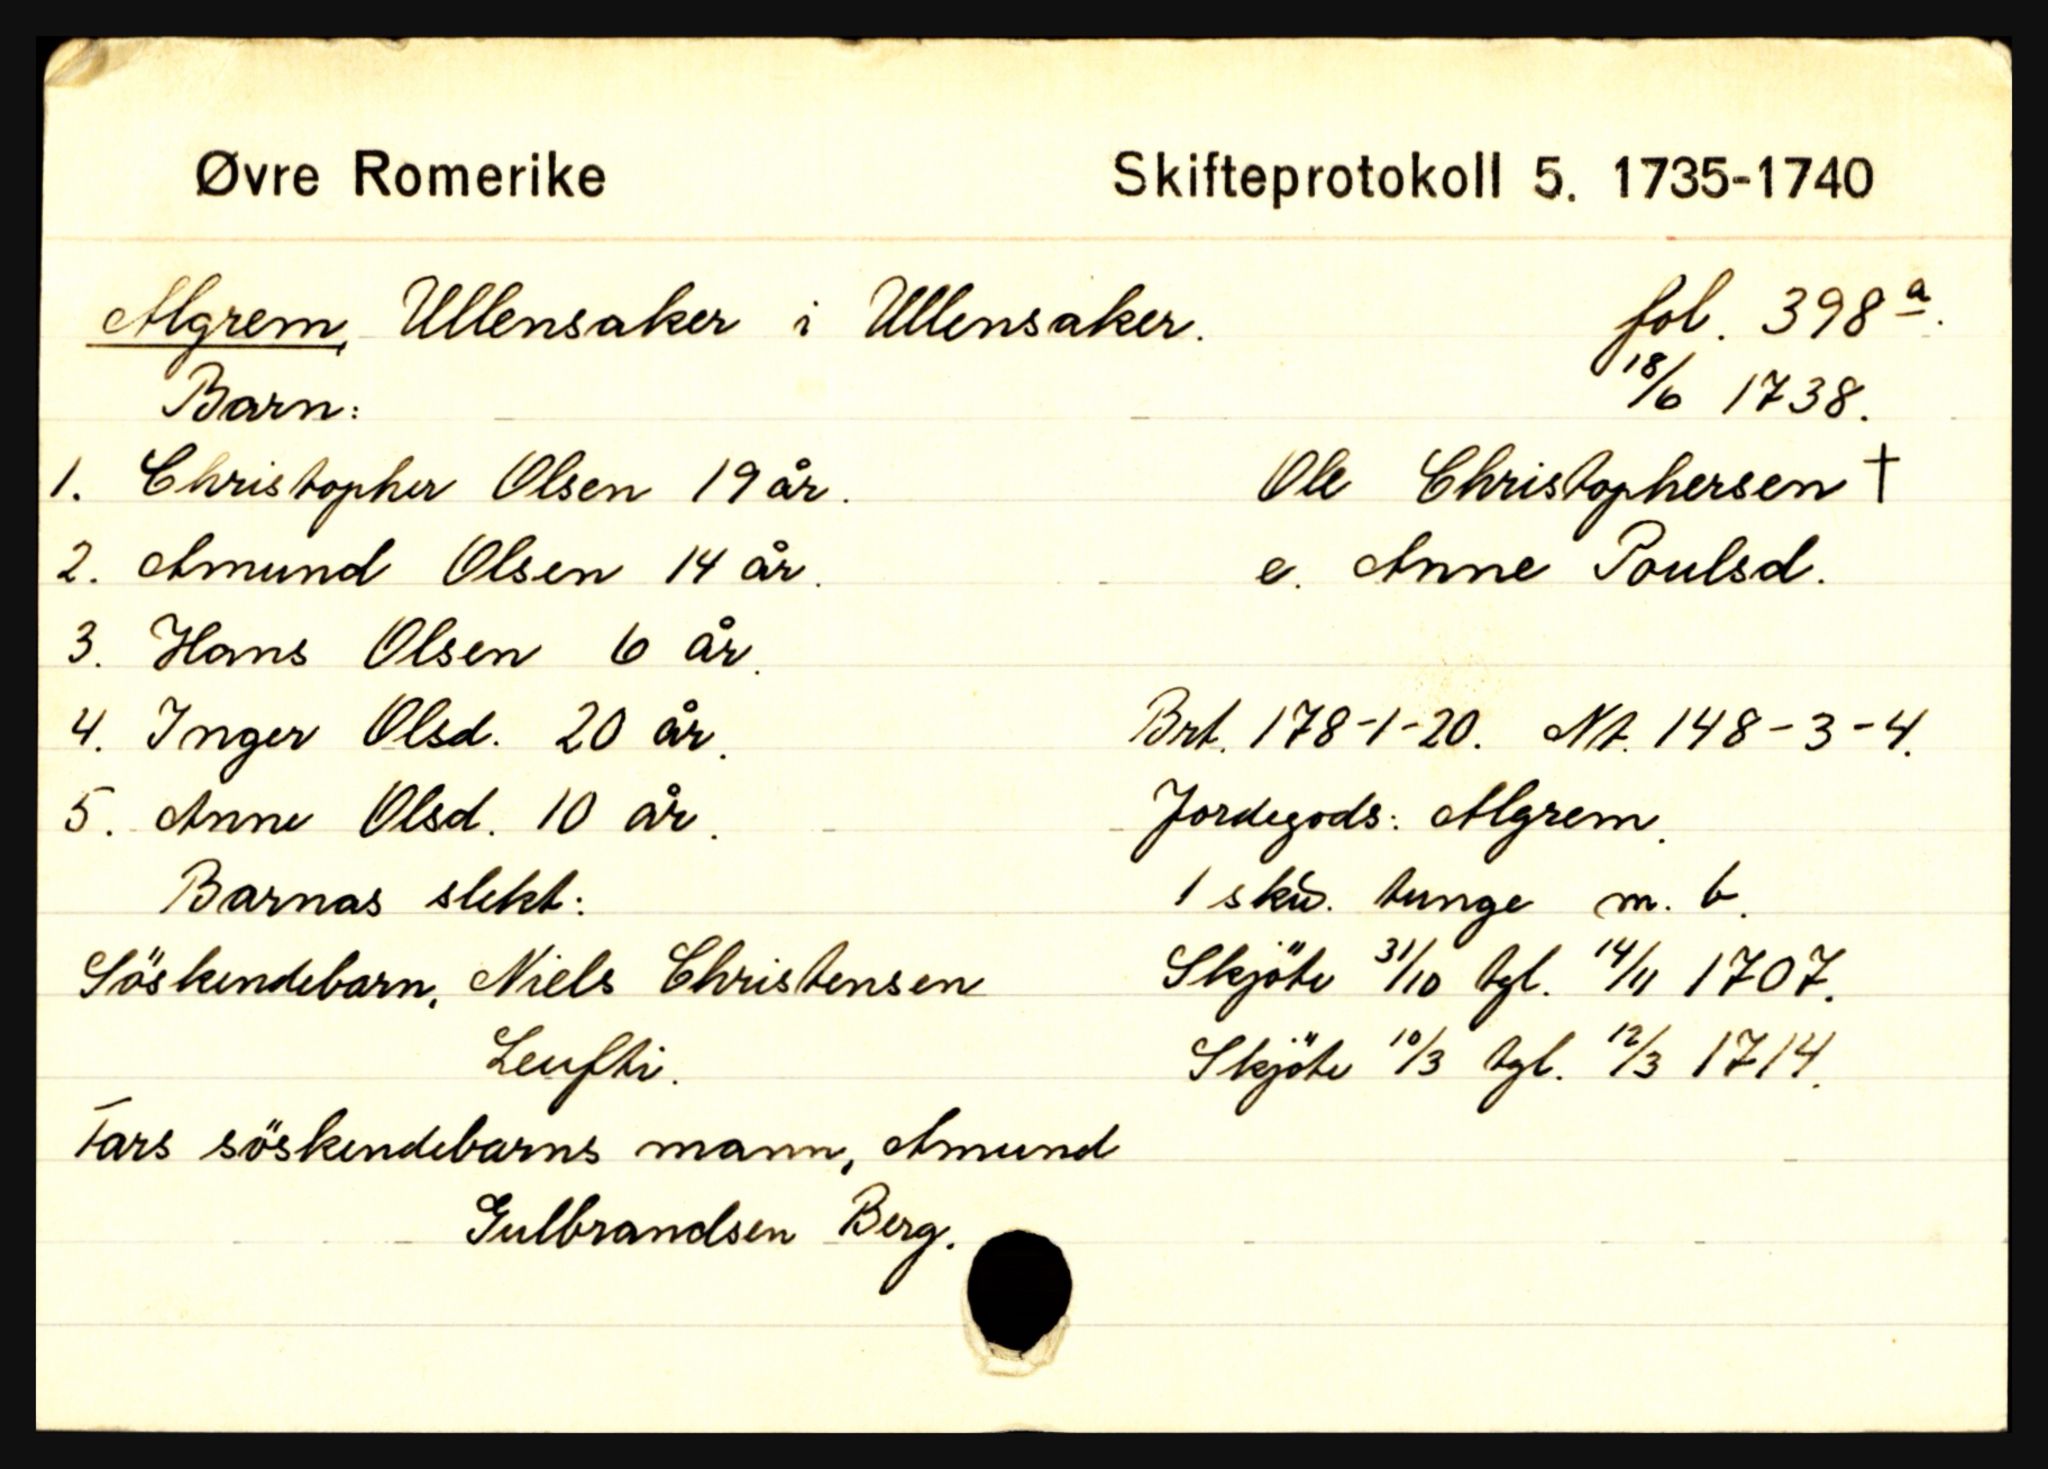 Øvre Romerike
Skifteprotokoll 5. 1735-1740
Algrem, Ullensaker i Ullensaker.
fol. 398 a.
18/6 1738.
Barn:
1. Christopher Olsen 19 år.
2. Amund Olsen 14 år.
3. Hans Olsen 6 år.
4. Inger Olsd. 20 år.
5. Anne Olsd. 10 år.
Barnas slekt:
Söskendebarn, Niels Christensen
Leufti.
Fars söskendebarns mann, Amund
Gulbrandsen Berg.
Ole Christophersen †
e. Anne Poulsd.
Brt. 178-1-20. Nt. 148-3-4.
Jordegods: Algrem.
1 skil. tunge m. b.
Skjöte 31/10 tgl. 14/11 1707.
Skjöte 10/3 tgl. 12/3 1714.